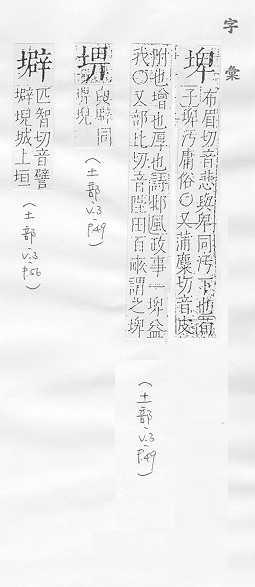 字彙
埤
布眉切音悲與𤰞同汚下也荀
子埤汚庸俗○又蒲麋切音皮
附也增也厚也詩邶風政事一埤益
我○又部比切音陛田百畝謂之埤
(土部、v.3、p49)
堺
同
堄
(土部、v.3、p49)
壀
匹智切音譬
壀堄城上垣
(土部、v.3、p56)